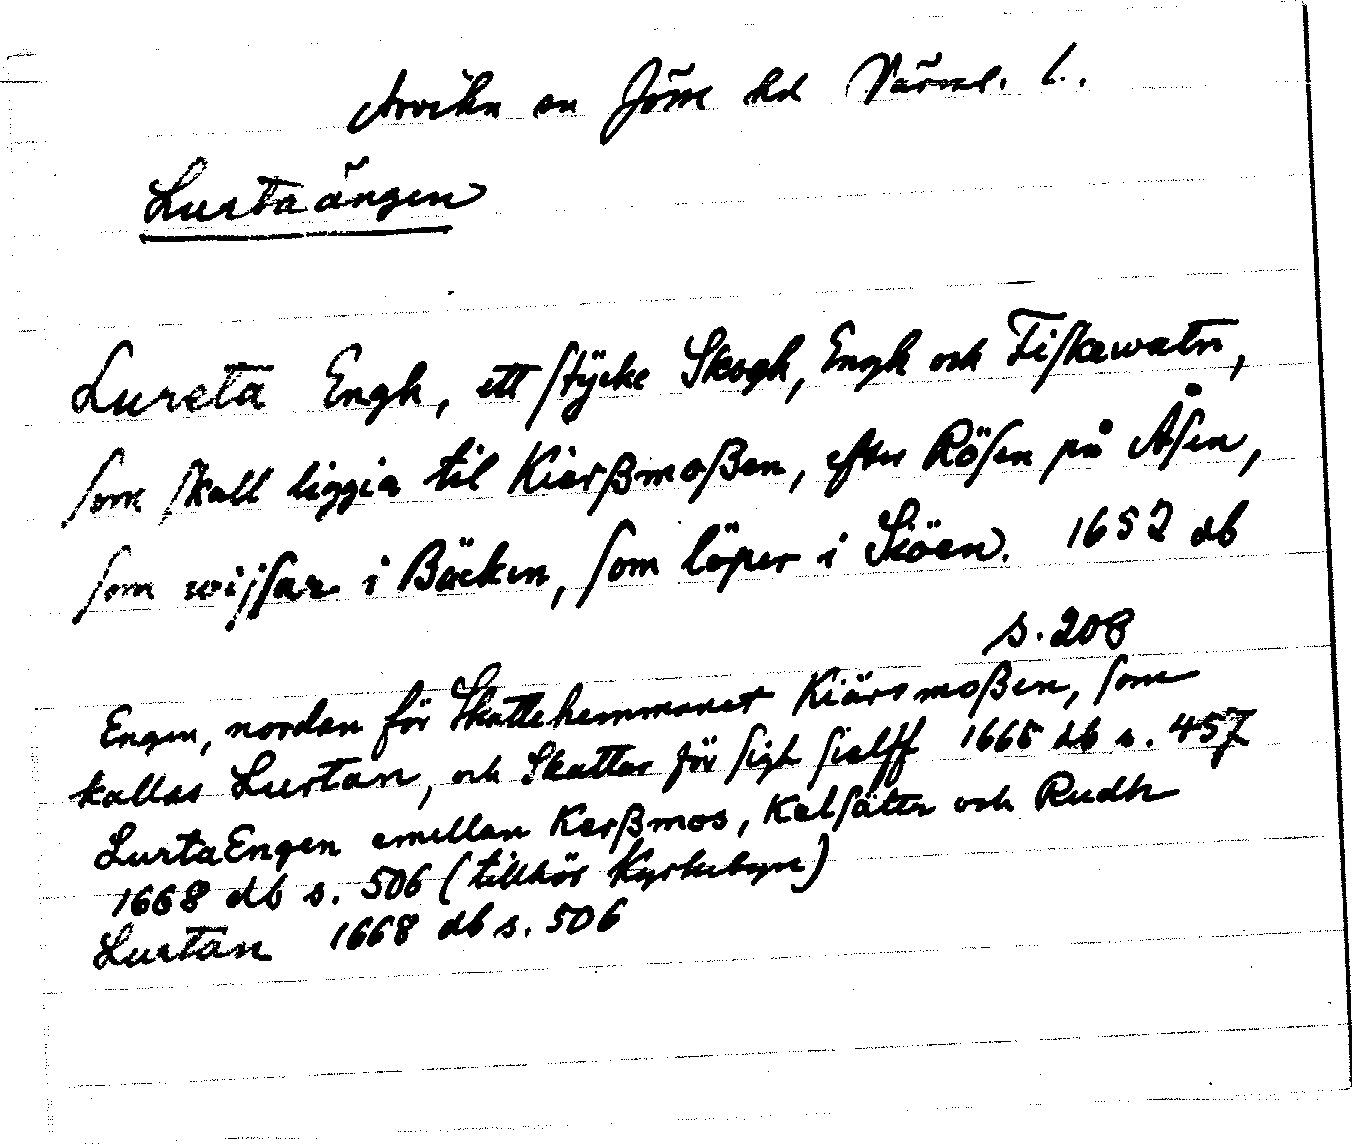 Arvika sn Jösse hd Värml. l.
Lurtaängen
Lureta Engh, ett stÿcke Skogh, Engh och Fiskewatn,
som skall liggia til Kierßmoßen, efter Rösen på Åsen,
som wijsar i Bäcken, som löper i Siöen. 1652 db
s. 208
Engen, nordan för Skattehemmanet Kiärsmoßen, som
kallas Lurtan, och Skattar för sigh sielff 1665 db s. 457
LurtaEngen emellan Kerßmos, Kelsäter och Rudh
1668 db s. 506 (tillhör Kyrkebyn)
Lurtan 1668 db s. 506